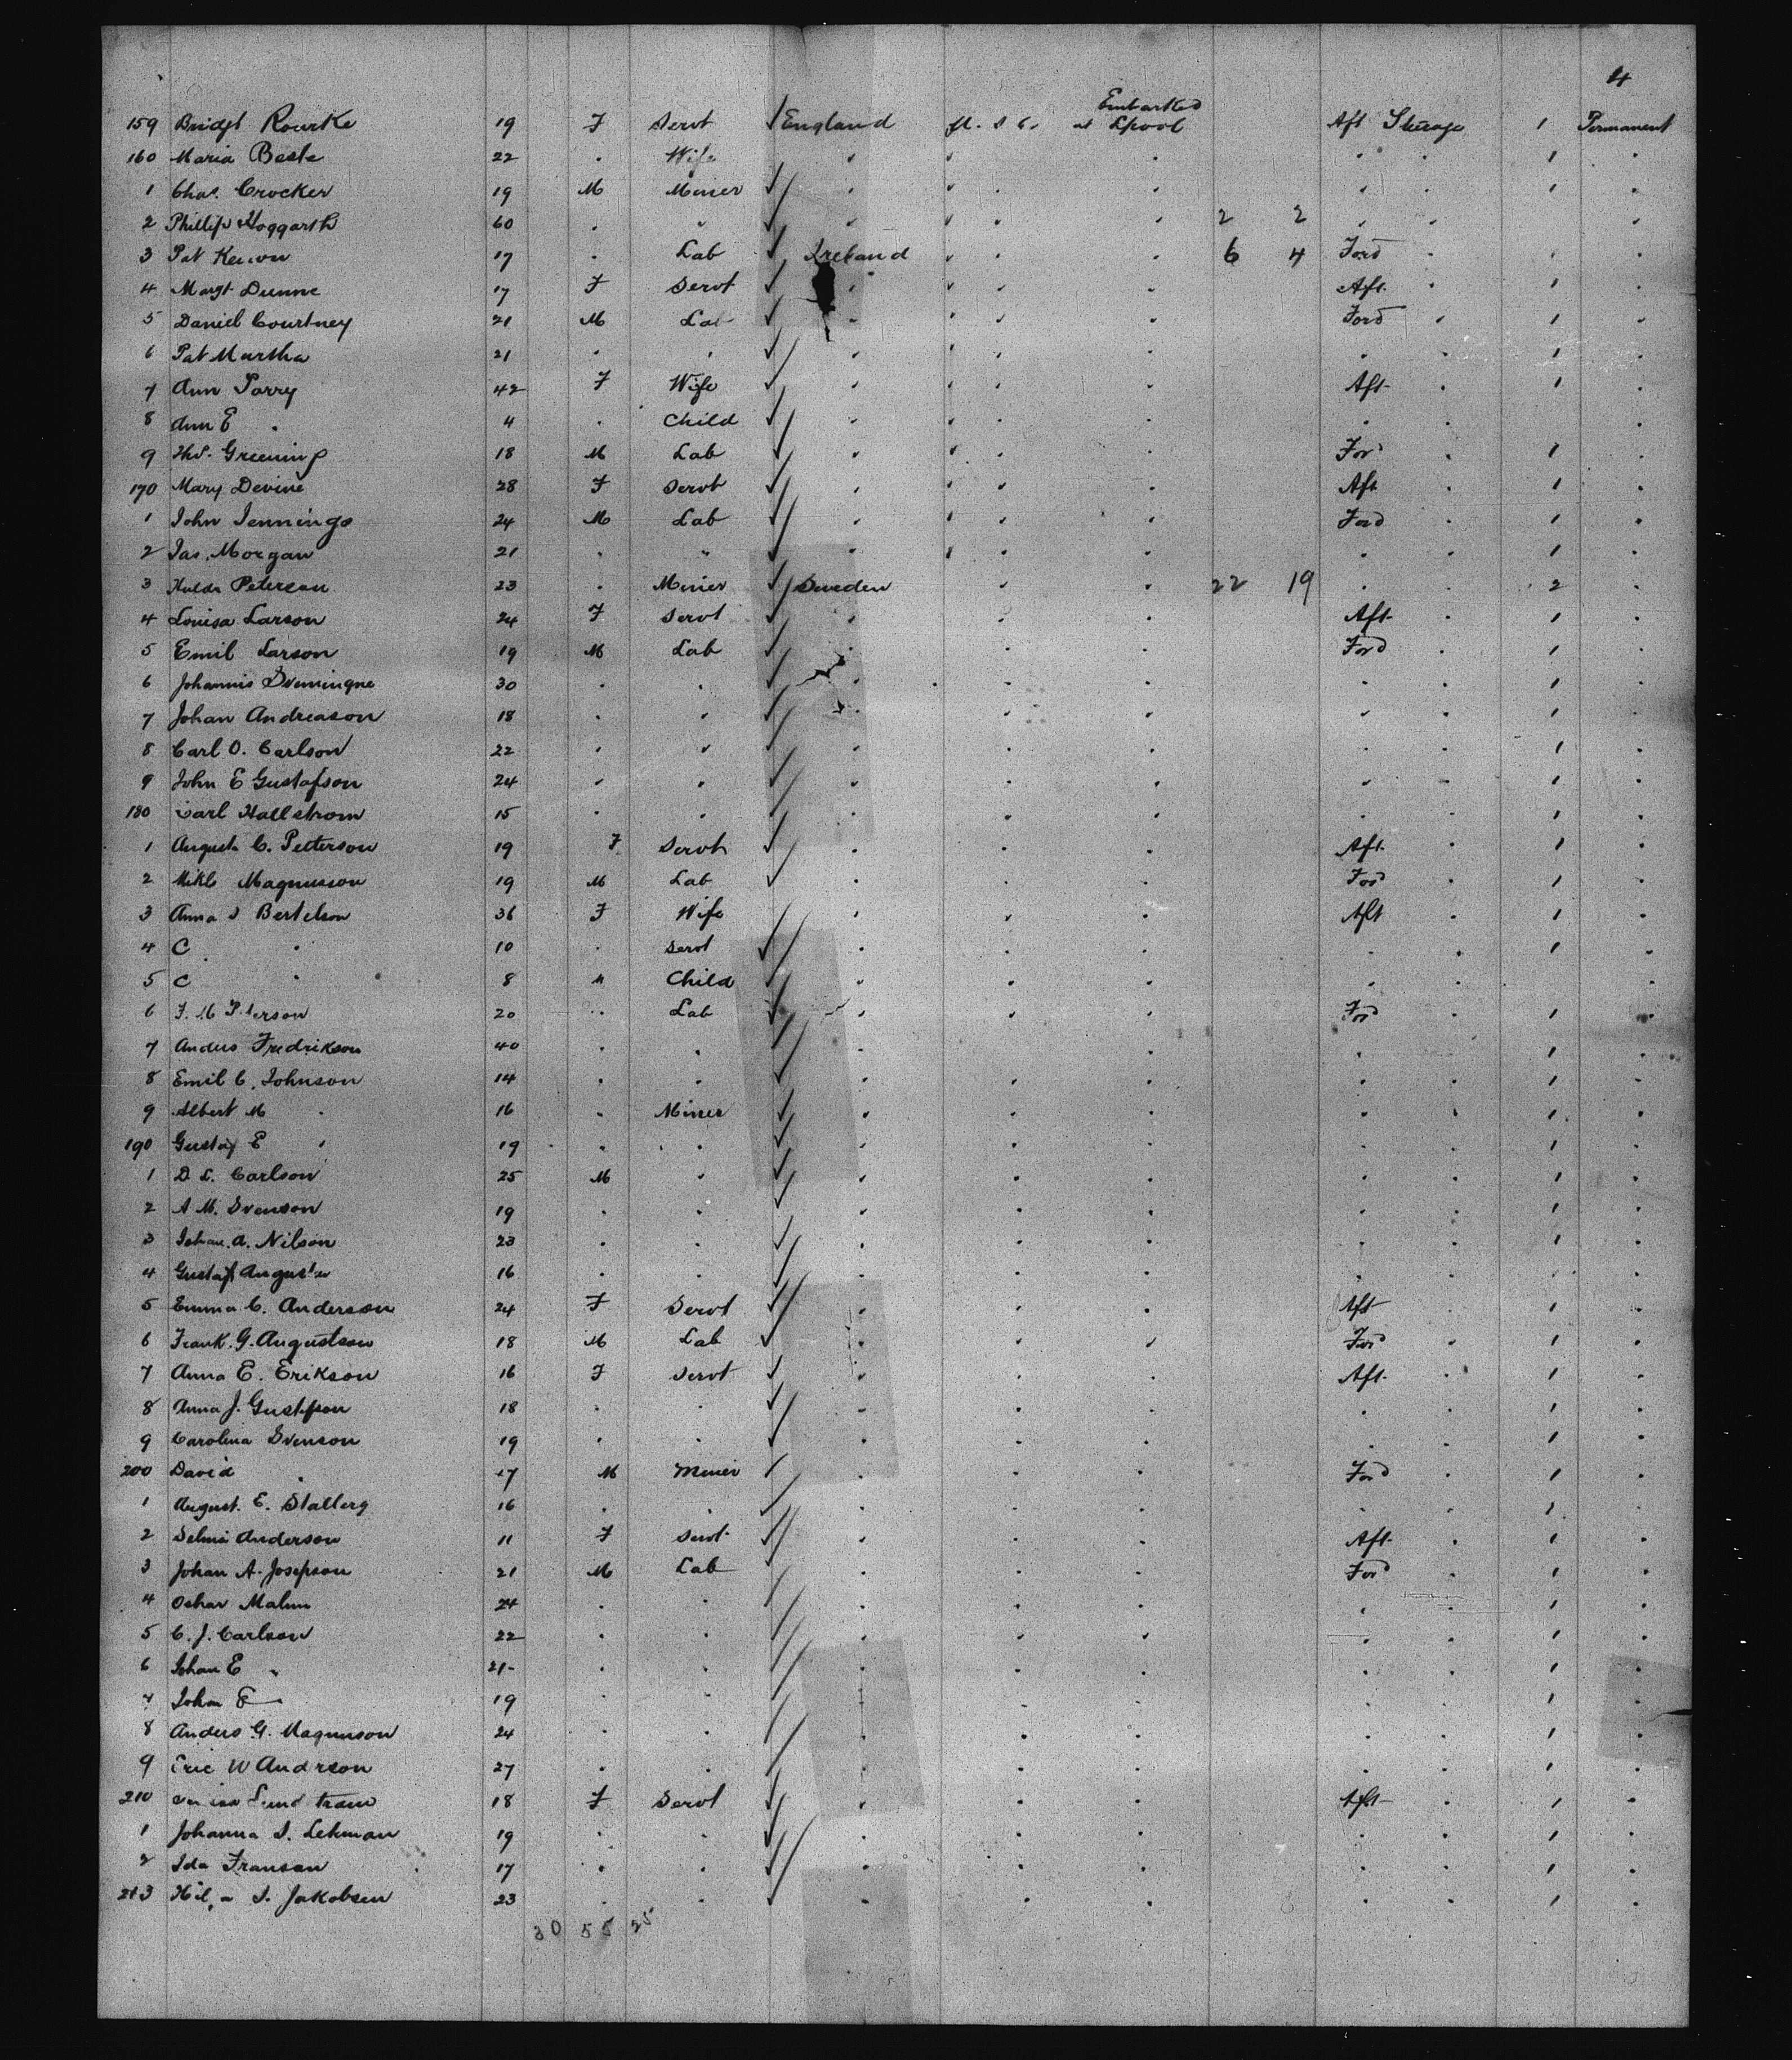 4
Embarked
159 Bridgt Rourke 19 F Servt England at Lpool Aft Steerage 1 Permanent
160 Maria Beste 22 " Wife " " " " " 1 "
1 Chas. Crocker 19 M Miner " " " " " 1 "
2 Phillip Hoggarth 60 " " " " " " 2 2 " " "
3 Pat 17 " Lab Ireland " " " 6 4 Ford " " "
4 Margt Dunne 17 F Servt " " " " Aft " 1 "
5 Daniel Courtney 21 M Lab " " " " Ford " 1 "
6 Pat Murtha 21 " " " " " " " " 1 "
7 Ann Parry 42 F Wife " " " " Aft " 1 "
8 Ann E " 4 " Child " " " " " " "
9 Greening 18 M Lab " " " " Ford " 1 "
170 Mary Devine 28 F Servt " " " " Aft " 1 "
1 John Jennings 24 M Lab " " " " Ford " 1 "
2 Jas. Morgan 21 " " " " " " " " 1 "
3 Hulda Peterson 23 " Miner Sweden " " 22 19 " " 2 "
4 Louisa Larson 24 F Servt " " " Aft " 1 "
5 Emil Larson 19 M Lab " " " Ford " 1 "
6 Johannis 30 " " " " " " " 1 "
7 Johan Andreason 18 " " " " " " " 1 "
8 Carl O. Carlson 22 " " " " " " " 1 "
9 John E Gustafson 24 " " " " " " " 1 "
180 Carl Hallstrom 15 " " " " " " " 1 "
1 Augusta C. Petterson 19 F Servt " " " Aft " 1 "
2 Mikl Magnusson 19 M Lab " " " Ford " 1 "
3 Anna S Bertelson 36 F Wife " " " Aft " 1 "
4 C " 10 " Servt " " " " " 1 "
5 C " 8 M Child " " " " " "
6 20 " Lab " " " Ford " 1 "
7 Anders Fredrikson 40 " " " " " " 1 "
8 Emil C. Johnson 14 " " " " " " " 1 "
9 Albert M " 16 " Miner " " " " " 1 "
190 Gustaf E " 19 " " " " " " " 1 "
1 D L. Carlson 25 M " " " " " " 1 "
2 A M. Svenson 19 " " " " " " " 1 "
3 Johan. A. Nilson 23 " " " " " " " 1 "
4 Gustaf 16 " " " " " " " 1 "
5 Emma C. Anderson 24 F Servt " " " Aft " 1 "
6 Frank. G. Augustson 18 M Lab " " " Ford " 1 "
7 Anna E. Erikson 16 F Servt " " " Aft " 1 "
8 Anna J. Gustafson 18 " " " " " " " 1 "
9 Carolina Svenson 19 " " " " " " " 1 "
200 David " 17 M Miner " " " Ford " 1 "
1 August. E. Stalberg 16 " " " " " " " 1 "
2 Selma Anderson 11 F Servt " " " Aft " 1 "
3 Johan A. Josepson 21 M Lab " " " Ford " 1 "
4 Oskar Malm 24 " " " " " " " 1 "
5 C. J. Carlson 22 " " " " " " " 1 "
6 Johan E " 21 " " " " " " " 1 "
7 Johan E " 19 " " " " " " " 1 "
8 Anders G. Magnuson 24 " " " " " " " 1 "
9 Eric W Andrson 27 " " " " " " " 1 "
210 18 F Servt " " " Aft " 1 "
1 Johanna S. Lehman 19 " " " " " " " 1 "
2 Ida Fransan 17 " " " " " " " 1 "
213 S. Jakobsen 23 " " " " " " " 1 "
30 55 25